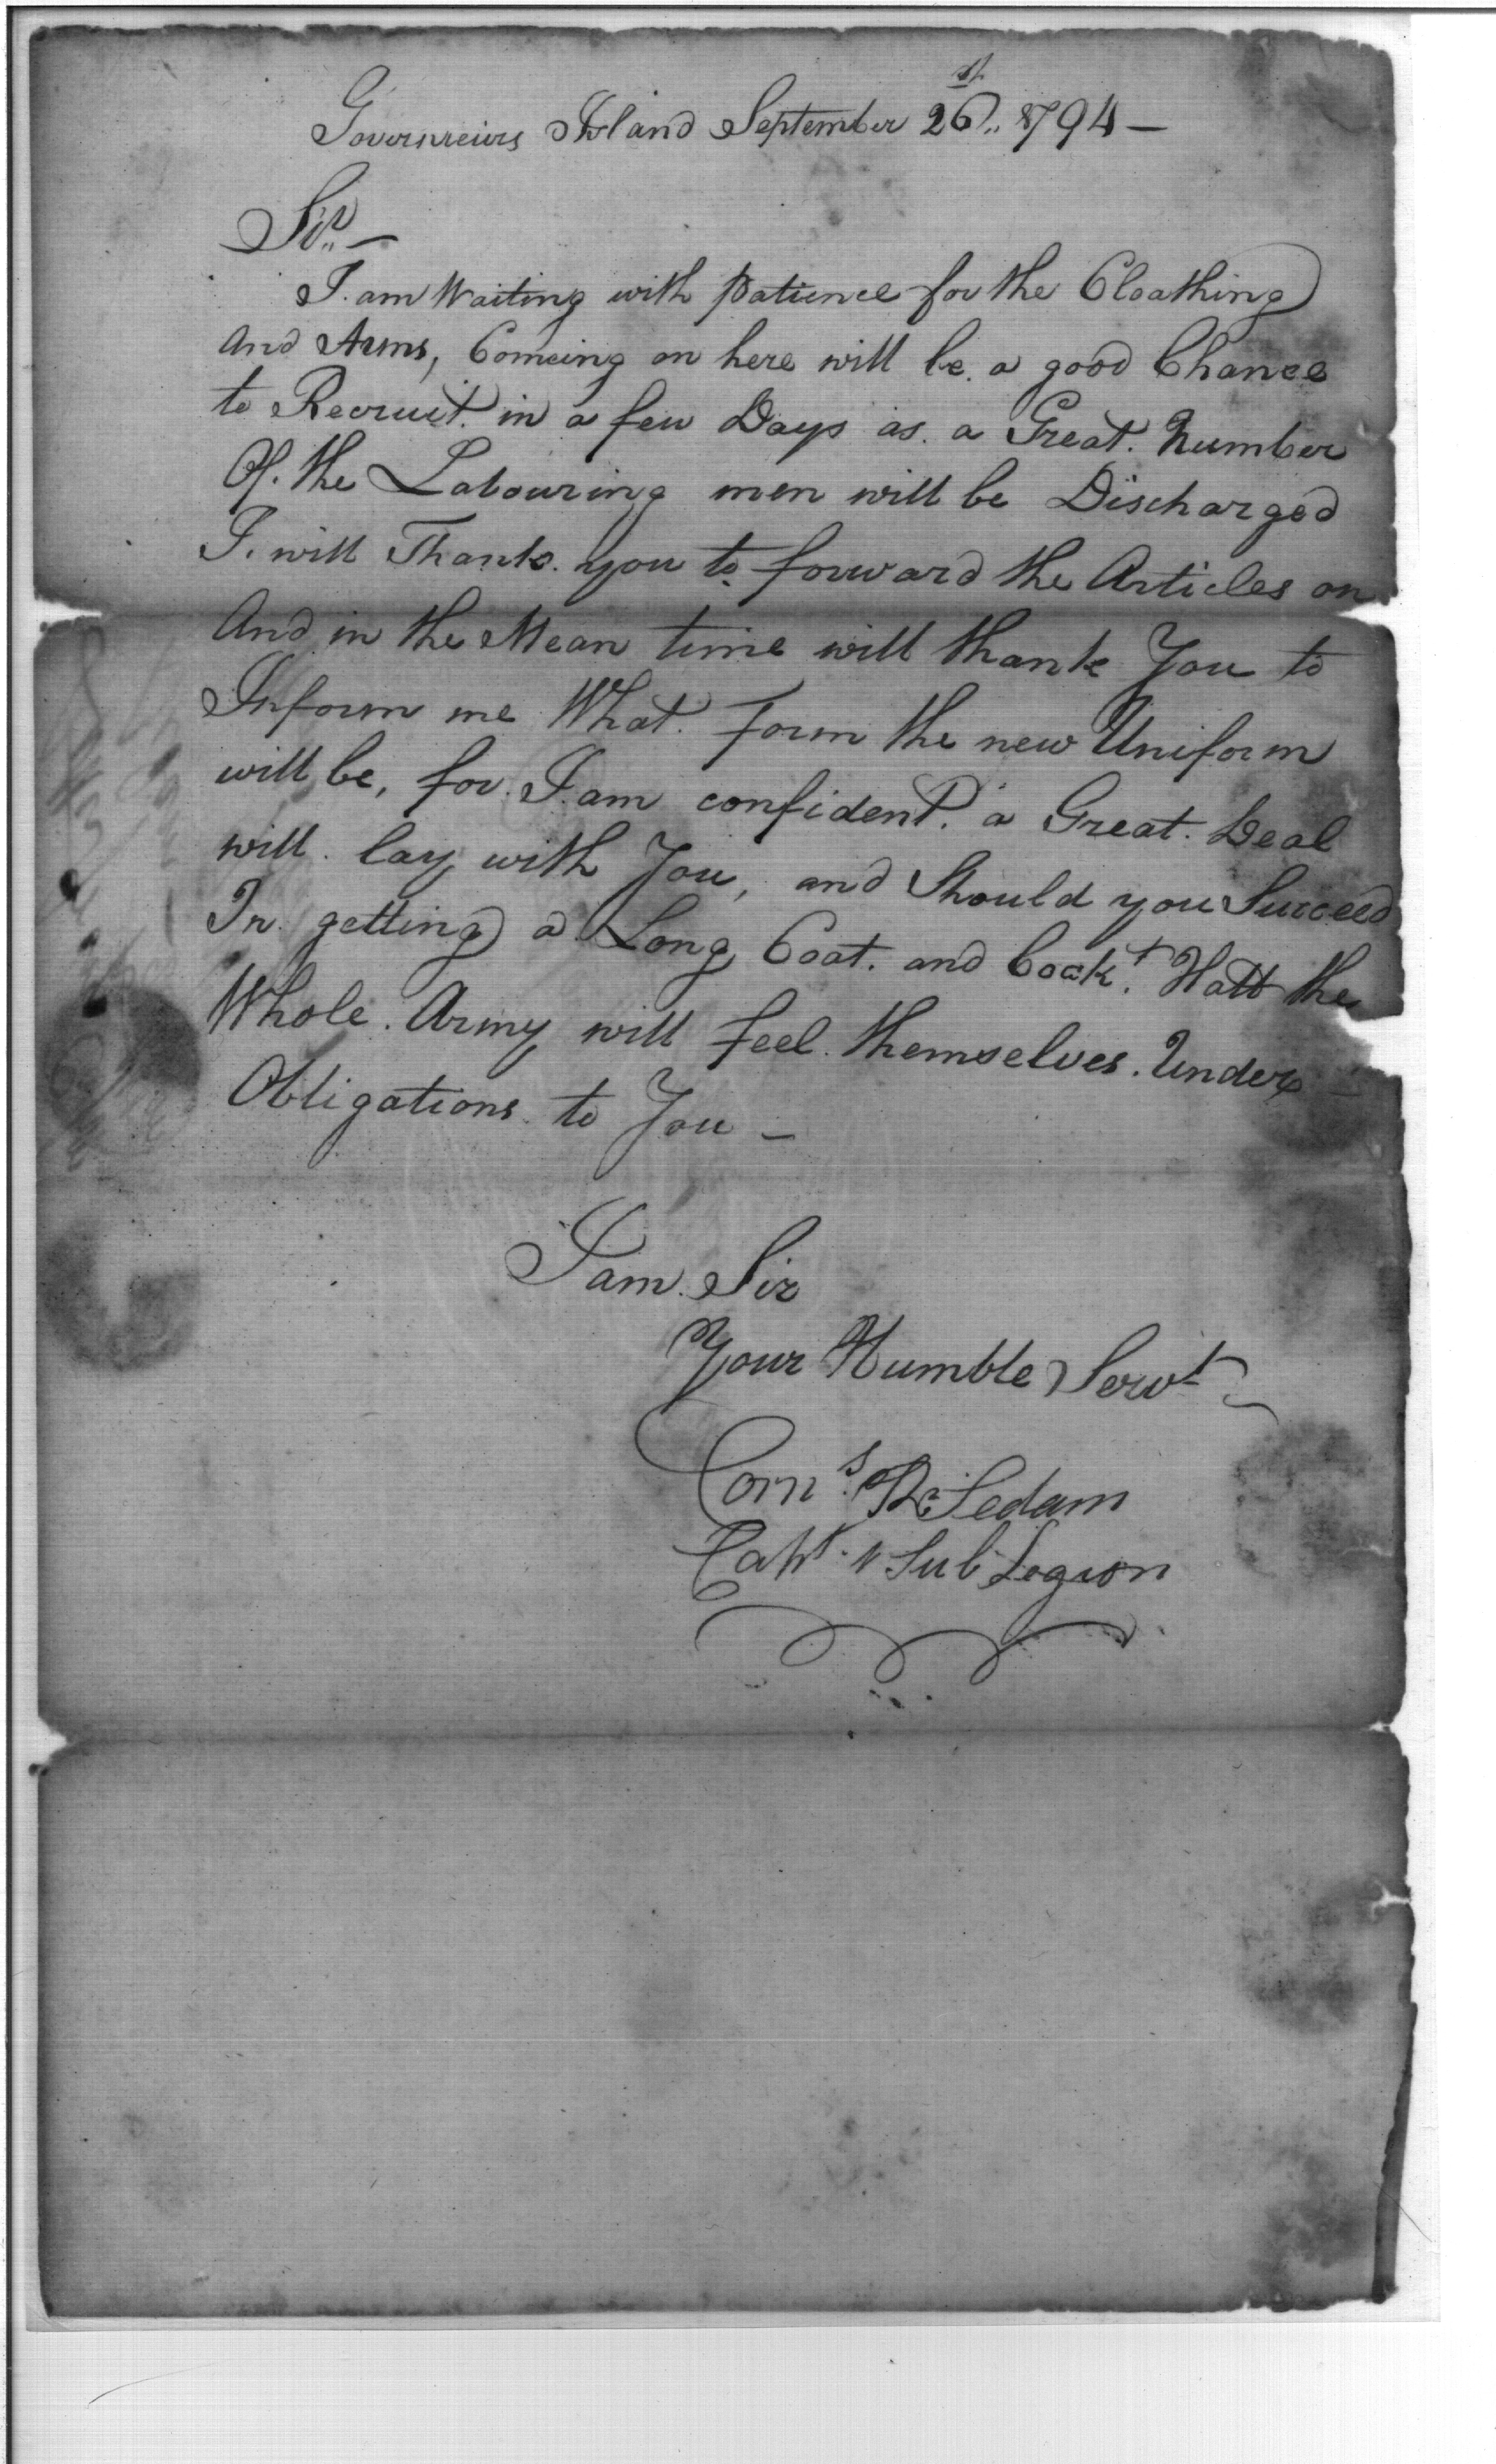 Governeiurs Island September 26th 1794 —
Sir —
I am Waiting with patience for the Cloathing
And Arms, Comeing on here will be a good Chance
to Recruit in a few Days as a Great Number
Of the Labouring men will be Discharged
I will Thank you to forward the Articles on
And in the Mean time will thank You to
Inform me What Form the new Uniform
will be, for I am confident a Great Deal
will lay with You, and Should you Succeed
In getting a Long Coat and Cockt Hatt the
Whole Army will feel themselves Under —
Obligations to You —
I am Sir
Your Humble Servt
Corns R Sedam
Capt Sub Legion